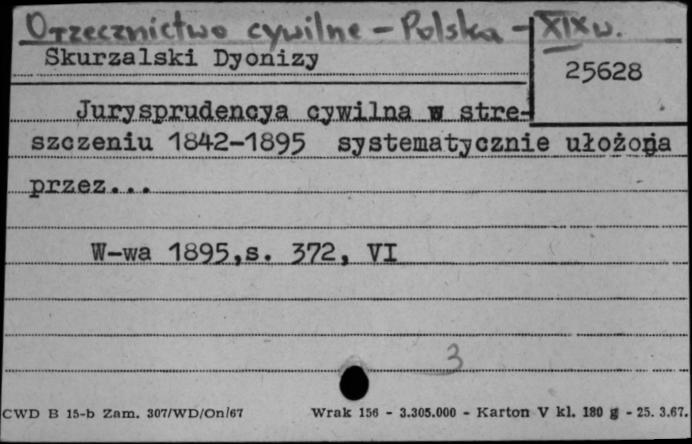 Orzecznictwo cywilne - Polska - XIX w.
Skurzalski Dyonizy
25628
Jurysprudencya cywilna w stre-
szczeniu 1842-1895 systematycznie ułożona
przez...
W-wa 1895,s. 372, VI
3
CWD B 15-b Zam. 307/WD/On/67
Wrak 156 - 3.305.000 - Karton V kl. 180 g - 25. 3.67.